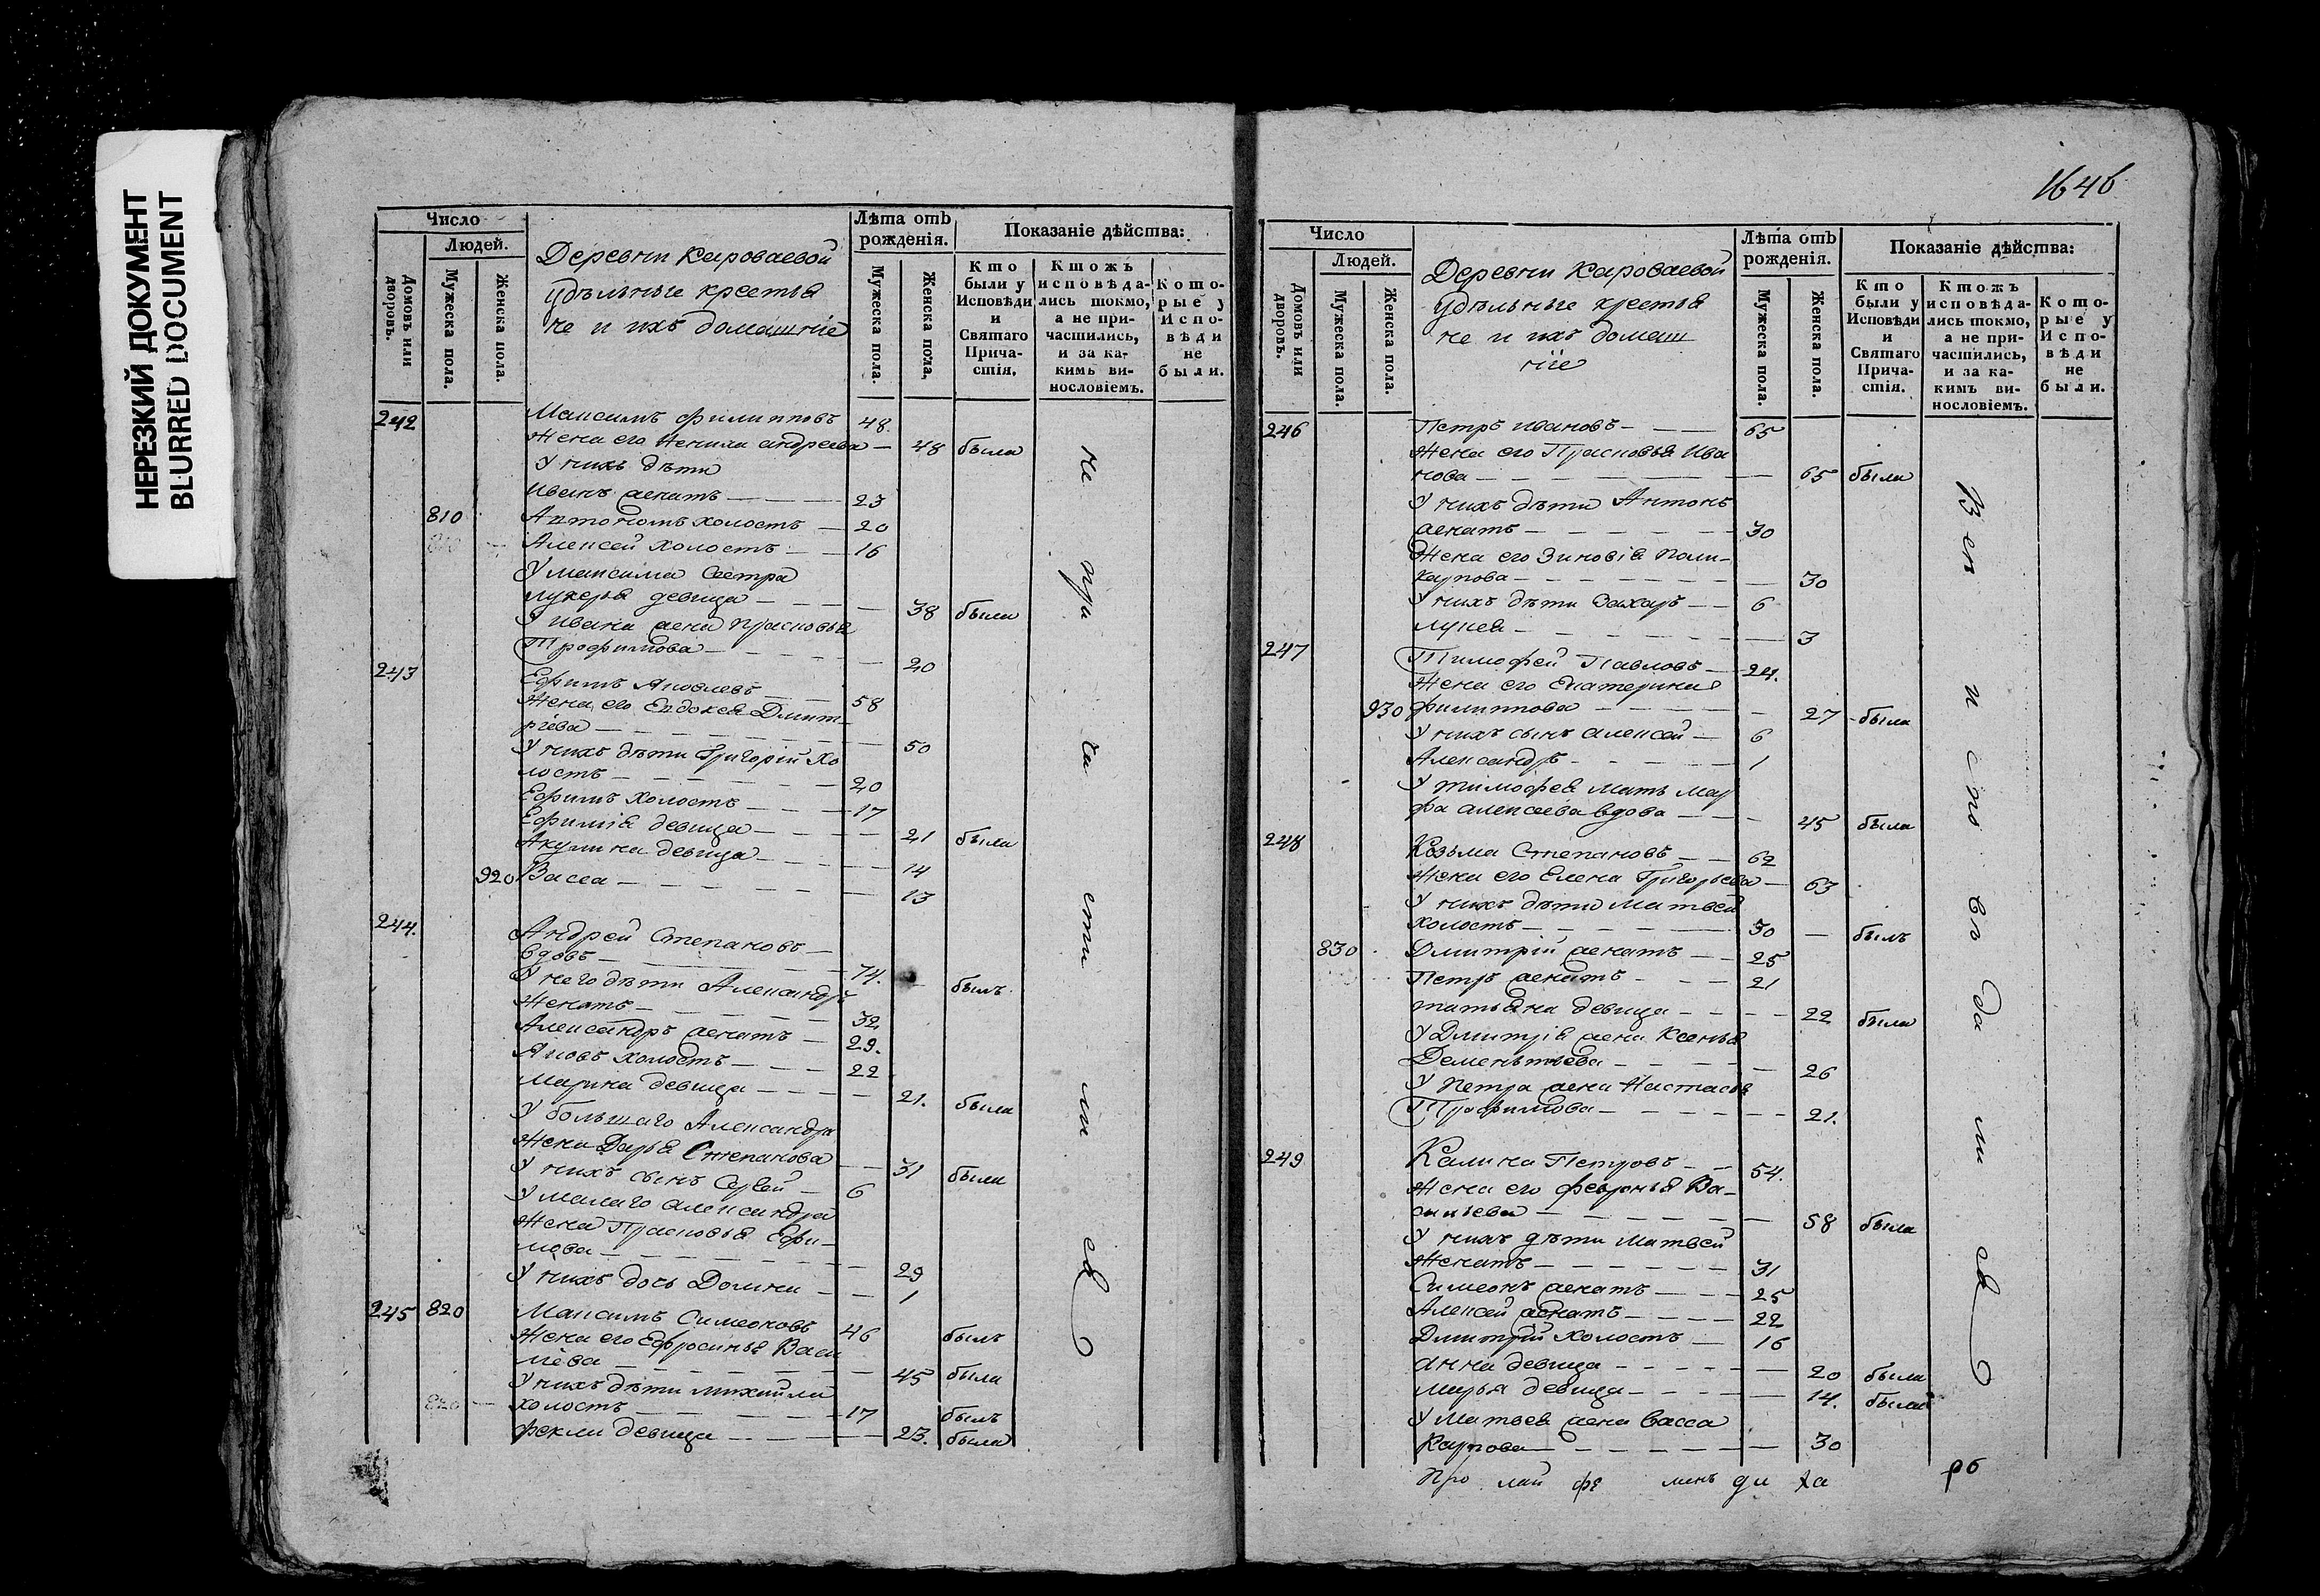 НЕРЕЗКИЙ ДОКУМЕНТ
BLURRED DOCUMENT
Число
Людей.
Домовъ или дворовъ.
Мужеска пола.
Женска пола.
Деревни Кароваевой
удѣльные крестья
не и ихъ домашніе
Лѣта отъ рожденія.
Мужеска пола.
Женска пола,
Показаніе дѣйства:
Кто были у Исповѣди и Святаго Прича-стія.
Ктожъ исповѣда-лись токмо, а не при-частились, и за ка-кимъ ви-нословіемъ.
Кото-рые у Испо-вѣди не были.
242 Максимъ Филипповъ 48
Жена его Ненила Андреева — 48 была
У нихъ дѣти
Иванъ женатъ — 23
810 Автономъ холостъ — 20
Алексей холостъ — 16
У Максима Сестра
Лукерья девица — 38 была
У Ивана жена Прасковья
Трофимова — 20
243 Ефимъ Яковлевъ 58
Жена его Евдокея Дмит-
ріева — 50
У нихъ дѣти Григорій хо
лостъ — 20
Ефимъ холостъ — 17
Ефимія девица — 21 была
Акулина девица — 14
920 Васса — 13
244. Андрей Степановъ —
вдовъ — 74. былъ
У него дѣти Александръ
женатъ — 32
Александръ женатъ — 29.
Яковъ холостъ — 22
Марина девица — 21. была
У большаго Александра
жена Дарья Степанова — 31 была
У нихъ сынъ Сергей — 6
У малаго Александра
жена Прасковья Ефи-
мова — 29
У нихъ дочь Домна — 1
245 820 Максимъ Симеоновъ 46 былъ
Жена его Ефросинья Васи
льева — 45 была
У нихъ дѣти Михайла
820 холостъ — 17 былъ
Фекла девица — 23. была
не при ча сти ли ся
1646
Число
Людей.
Домовъ или дворовъ.
Мужеска пола.
Женска пола.
Деревни Кароваевой
удѣльные крестья
не и ихъ домаш
ніе
Лѣта отъ рожденія.
Мужеска пола.
Женска пола.
Показаніе дѣйства:
Кто были у Исповѣди и Святаго Прича-стія.
Ктожъ исповѣда-лись токмо, а не при-частились, и за ка-кимъ ви-нословіемъ.
Кото-рые у Испо-вѣди не были.
246 Петръ Ивановъ — 65
Жена его Прасковья Ива
нова — 65 была
У нихъ дѣти Антонъ
женатъ — 30
Жена его Зиновія Поли-
карпова — 30
У нихъ дѣти Захаръ — 6
Лукея — 3
247 Тимофей Павловъ — 24.
Жена его Екатерина
930 Филиппова — 27 была
У нихъ сынъ Алексей — 6
Александръ — 1
У Тимофея мать Мар
фа Алексеева вдова — 45 была
248 Козьма Степановъ — 62
Жена его Елена Григорьева — 63
У нихъ дѣти Матвей
холостъ — 30 — былъ
830 Дмитрій женатъ — 25
Петръ женатъ — 21
Татьяна девица — 22 была
У Дмитрія жена Ксенья
Дементьева — 26
У Петра жена Настасья
Трофимова — 21.
249 Калина Петровъ — 54.
Жена его Февронья Ва-
сильева — 58 была
У нихъ дѣти Матвей
женатъ — 31
Симеонъ женатъ — 25
Алексей женатъ — 22
Дмитрій холостъ — 16
Анна девица — 20 была
Марья девица — 14. была
У Матвея жена Васса
Карпова — 30
ись по ве да ли ся